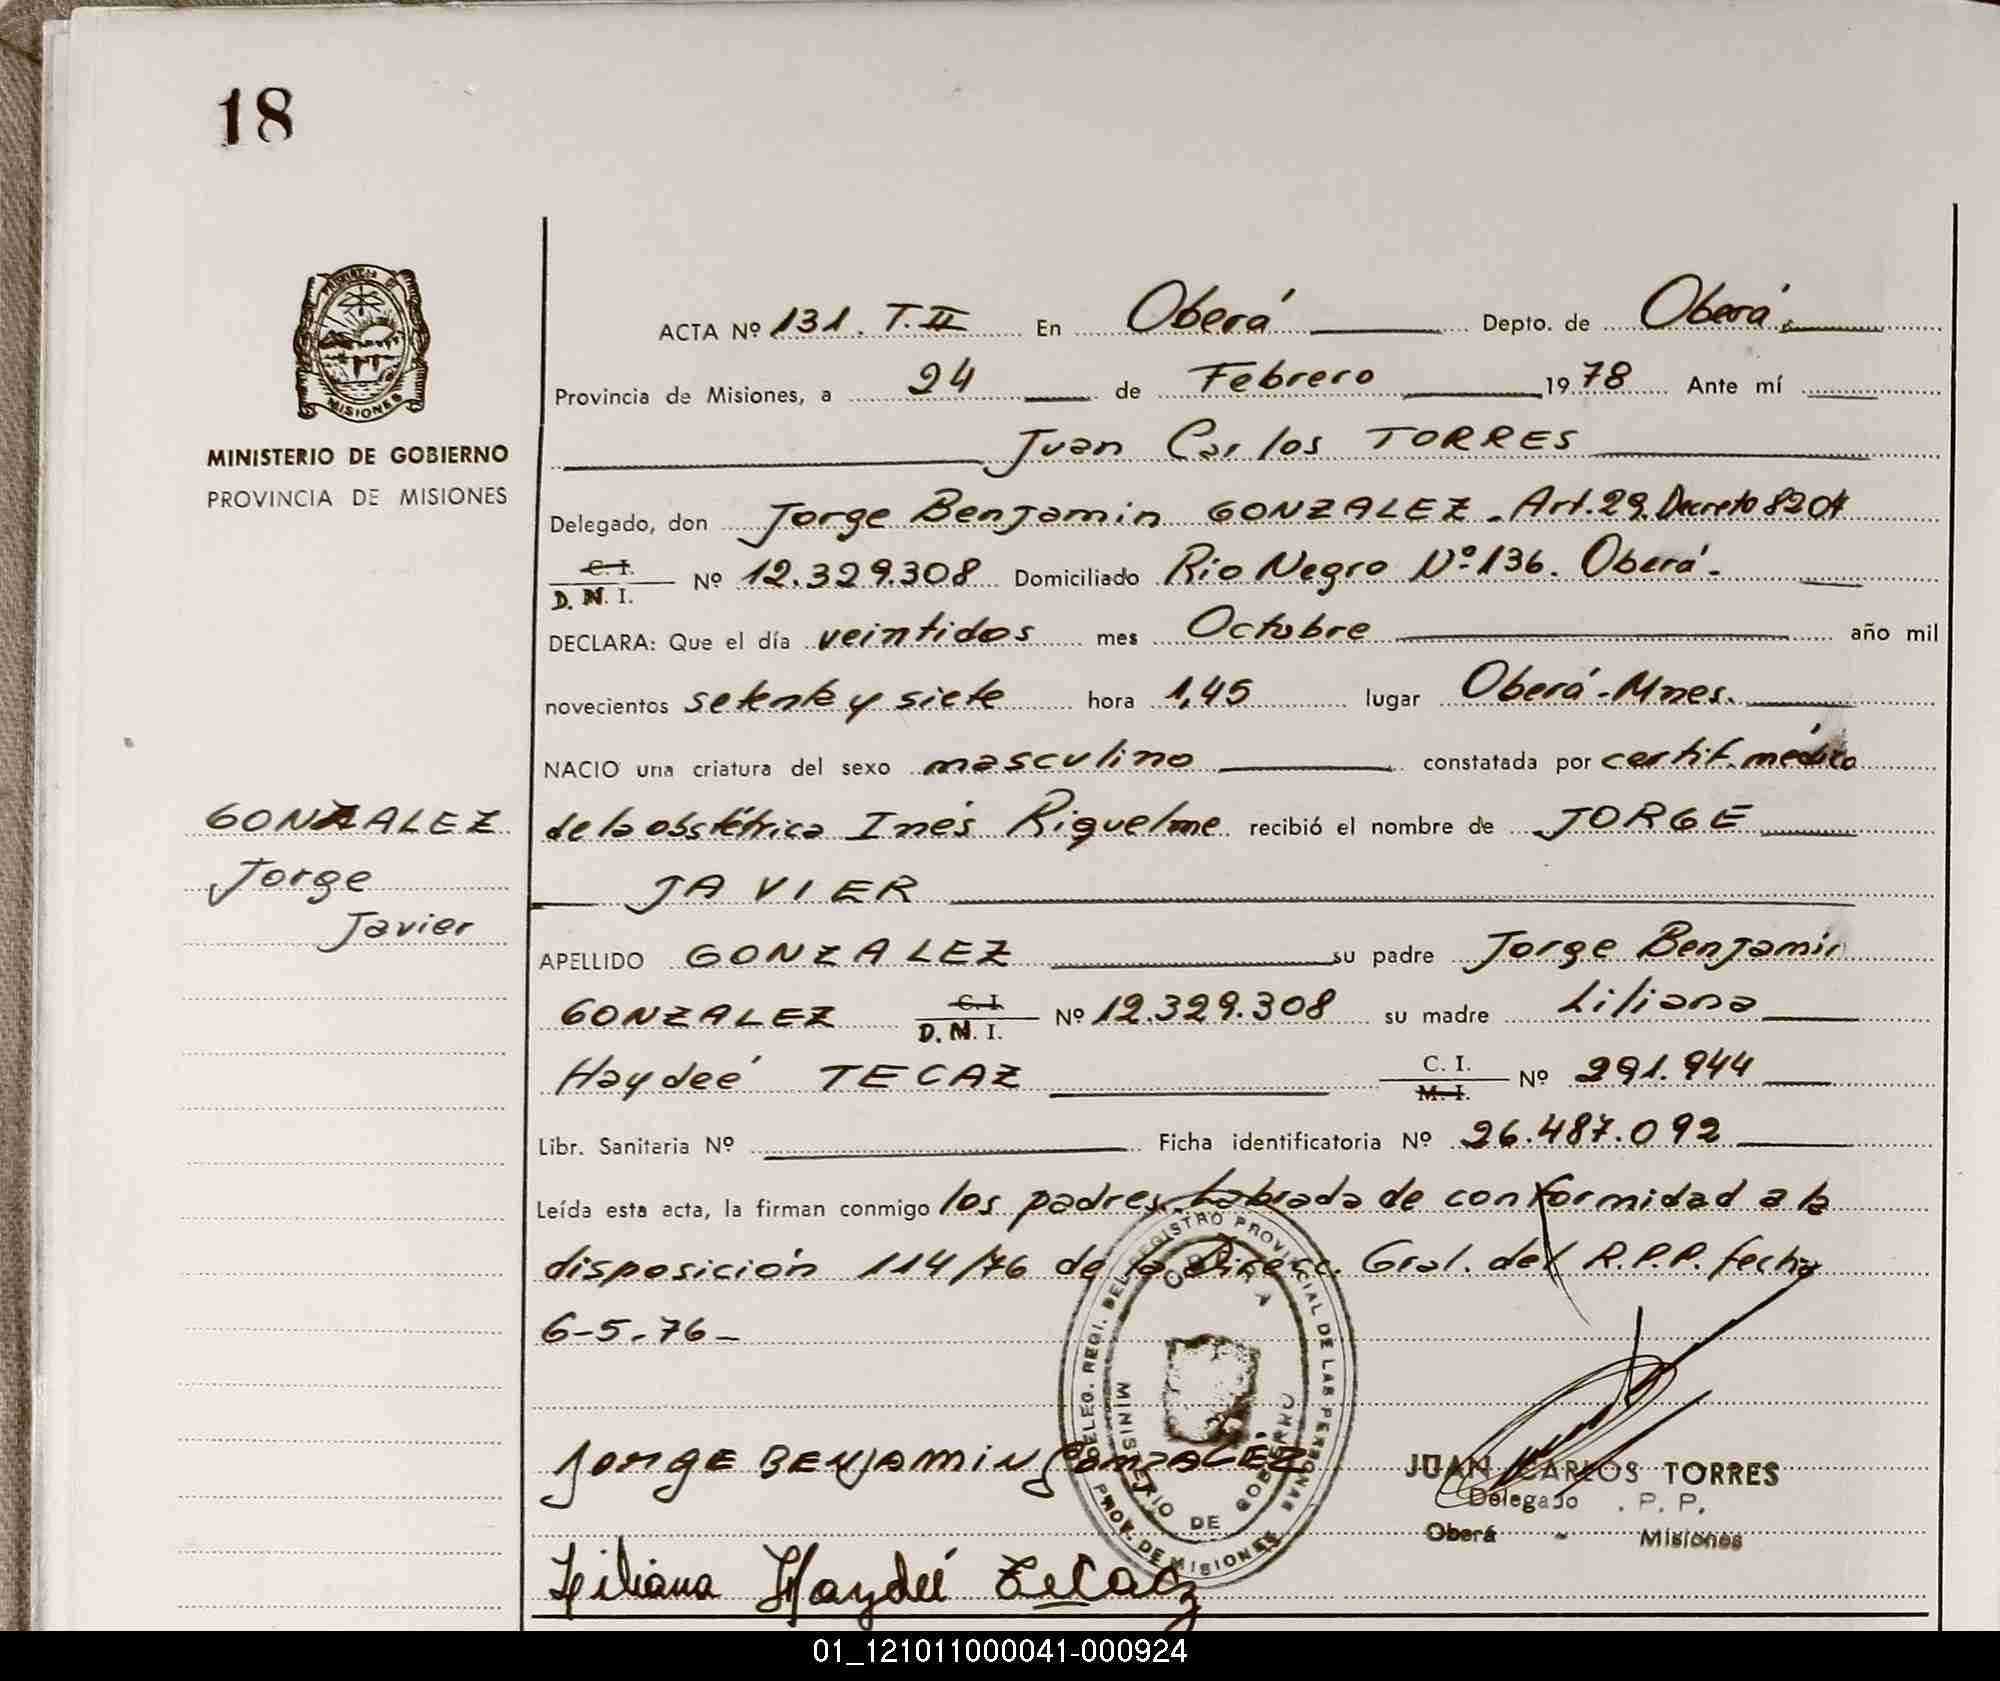 18
PROVINCIA DE
MISIONES
MINISTERIO DE GOBIERNO
PROVINCIA DE MISIONES
GONZALEZ
Jorge
Javier
ACTA Nº 131. T.II En Oberá Depto. de Oberá.
Provincia de Misiones, a 24 de Febrero 1978 Ante mí
Juan Carlos TORRES
Delegado, don Jorge Benjamin GONZALEZ. Art. 29. Decreto 8204
C. I.
D. N. I. Nº 12.329.308 Domiciliado Rio Negro Nº 136. Oberá.
DECLARA: Que el día veintidos mes Octubre año mil
novecientos setenta y siete hora 1,45 lugar Oberá - Mnes.
NACIO una criatura del sexo masculino constatada por certif. médico
de la obstétrica Inés Riquelme recibió el nombre de JORGE
JAVIER
APELLIDO GONZALEZ su padre Jorge Benjamin
GONZALEZ C. I. D. N. I. Nº 12.329.308 su madre Liliana
Haydeé TECAZ C. I. M. I. Nº 291.944
Libr. Sanitaria Nº Ficha identificatoria Nº 26.487.092
Leída esta acta, la firman conmigo los padres. Labrada de conformidad a la
disposición 114/76 de la Direcc. Gral. del R.P.P. fecha
6-5.76-
DELEG. REGI. DEL REGISTRO PROVINCIAL DE LAS PERSONAS
OBERA
MINISTERIO DE GOBIERNO
PROV. DE MISIONES
JORGE BENJAMIN GONZALEZ
JUAN CARLOS TORRES
Delegado . P. P.
Oberá - Misiones
Liliana Haydeé Tecaz
01_121011000041-000924